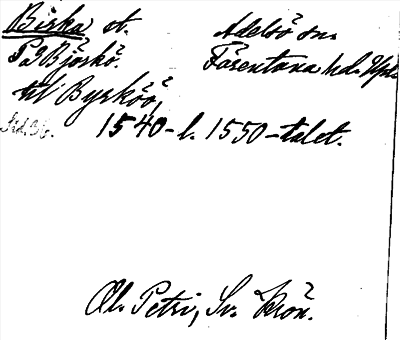 Birka st. Adelsö sn.
På Björkö. Färentuna hd. Upl.
til Byrköö,
1540-t. 1550-talet.
Ol. Petri, Sv. Krön.